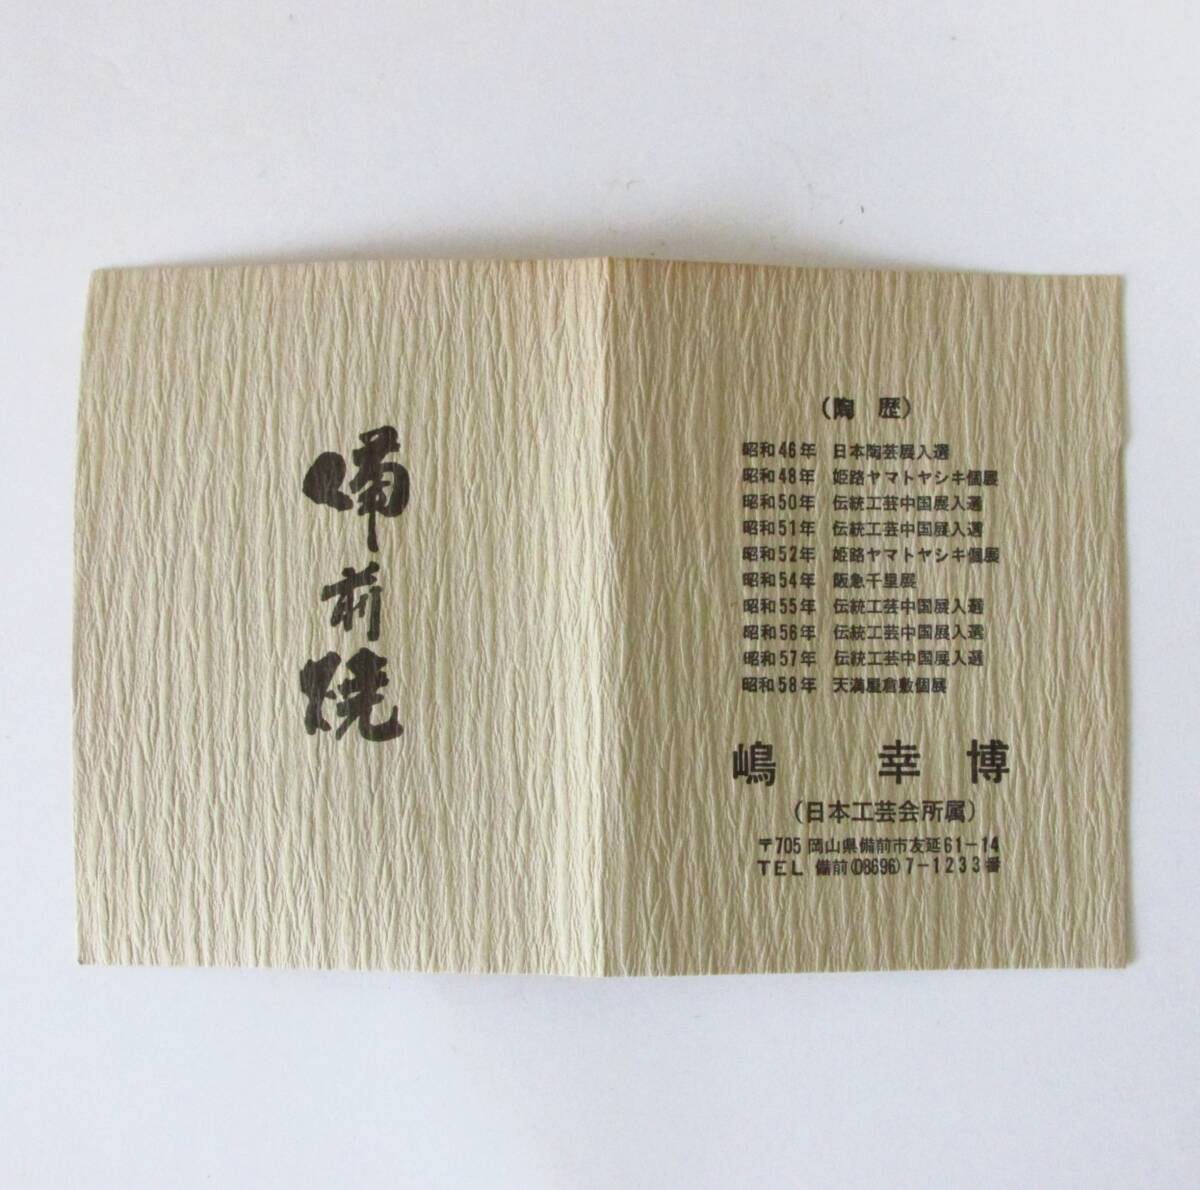 備前焼
(陶歴)
昭和46年 日本陶芸展入選
昭和48年 姫路ヤマトヤシキ個展
昭和50年 伝統工芸中国展入選
昭和51年 伝統工芸中国展入選
昭和52年 姫路ヤマトヤシキ個展
昭和54年 阪急千里展
昭和55年 伝統工芸中国展入選
昭和56年 伝統工芸中国展入選
昭和57年 伝統工芸中国展入選
昭和58年 天満屋倉敷個展
嶋 幸博
(日本工芸会所属)
〒705 岡山県備前市友延61-14
TEL 備前(08696)7-1233番